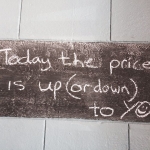 Today the price
is up (or down)
to Y